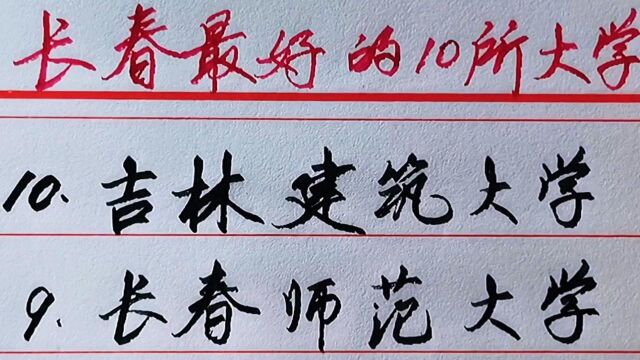 长春最好的10所大学
10.吉林建筑大学
9.长春师范大学